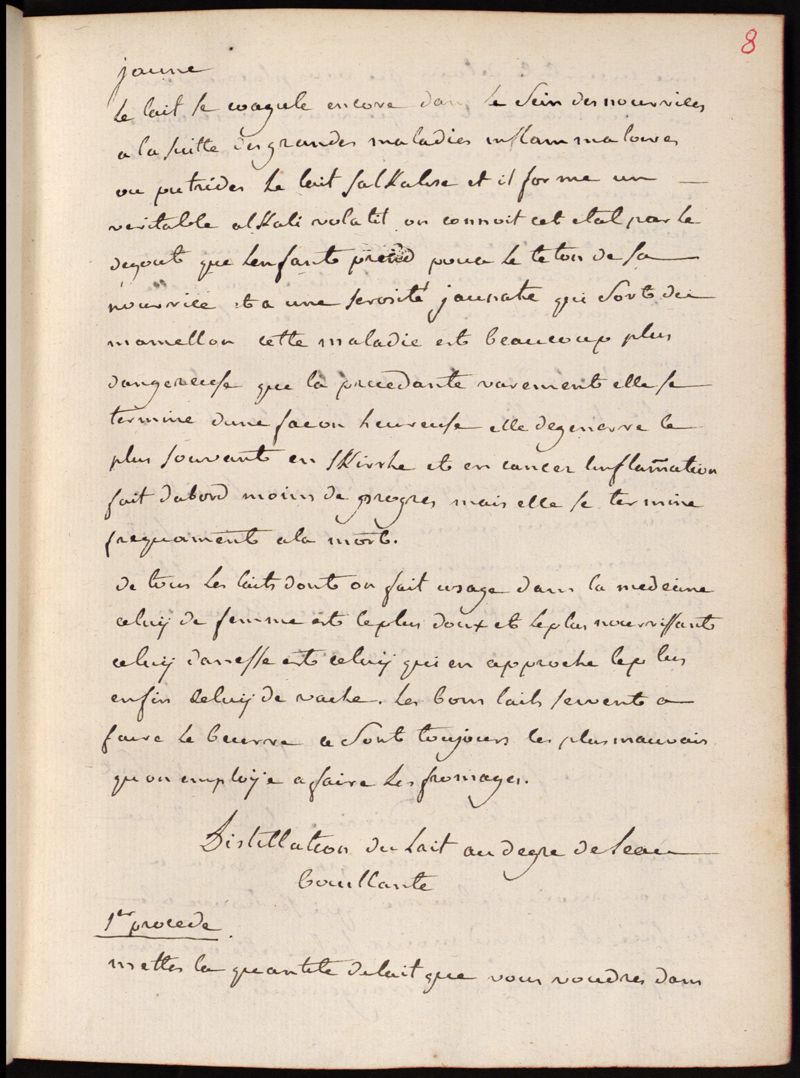 8
jaune
Le lait se coagule encore dans le sein des nourrices
a la suitte des grandes maladies inflammatoires
ou putrides le lait salkalise et il forme un
veritable alkali volatil on connoit cet etat par le
degout que lenfant prend pour le teton de sa
nourrice et a une serosité jaunatre qui sort du
mamellon cette maladie est beaucoup plus
dangereuse que la precedante rarement elle se
termine dune facon heureuse elle degenerre le
plus souvant en skirrhe et en cancer linflamation
fait dabord moins de progres mais elle se termine
frequament a la mort.
de tous les laits dont on fait usage dans la medecine
celuy de femme est le plus doux et le plus nourrissant
celuy danesse est celuy qui en approche le plus
enfin celuy de vache. les bons laits servent a
faire le beurre ce sont toujours les plus mauvais
qu on employe a faire les fromages.
Distillation du lait au degre de leau
bouillante
1er procede
mettes la quantite de lait que vous voudres dans